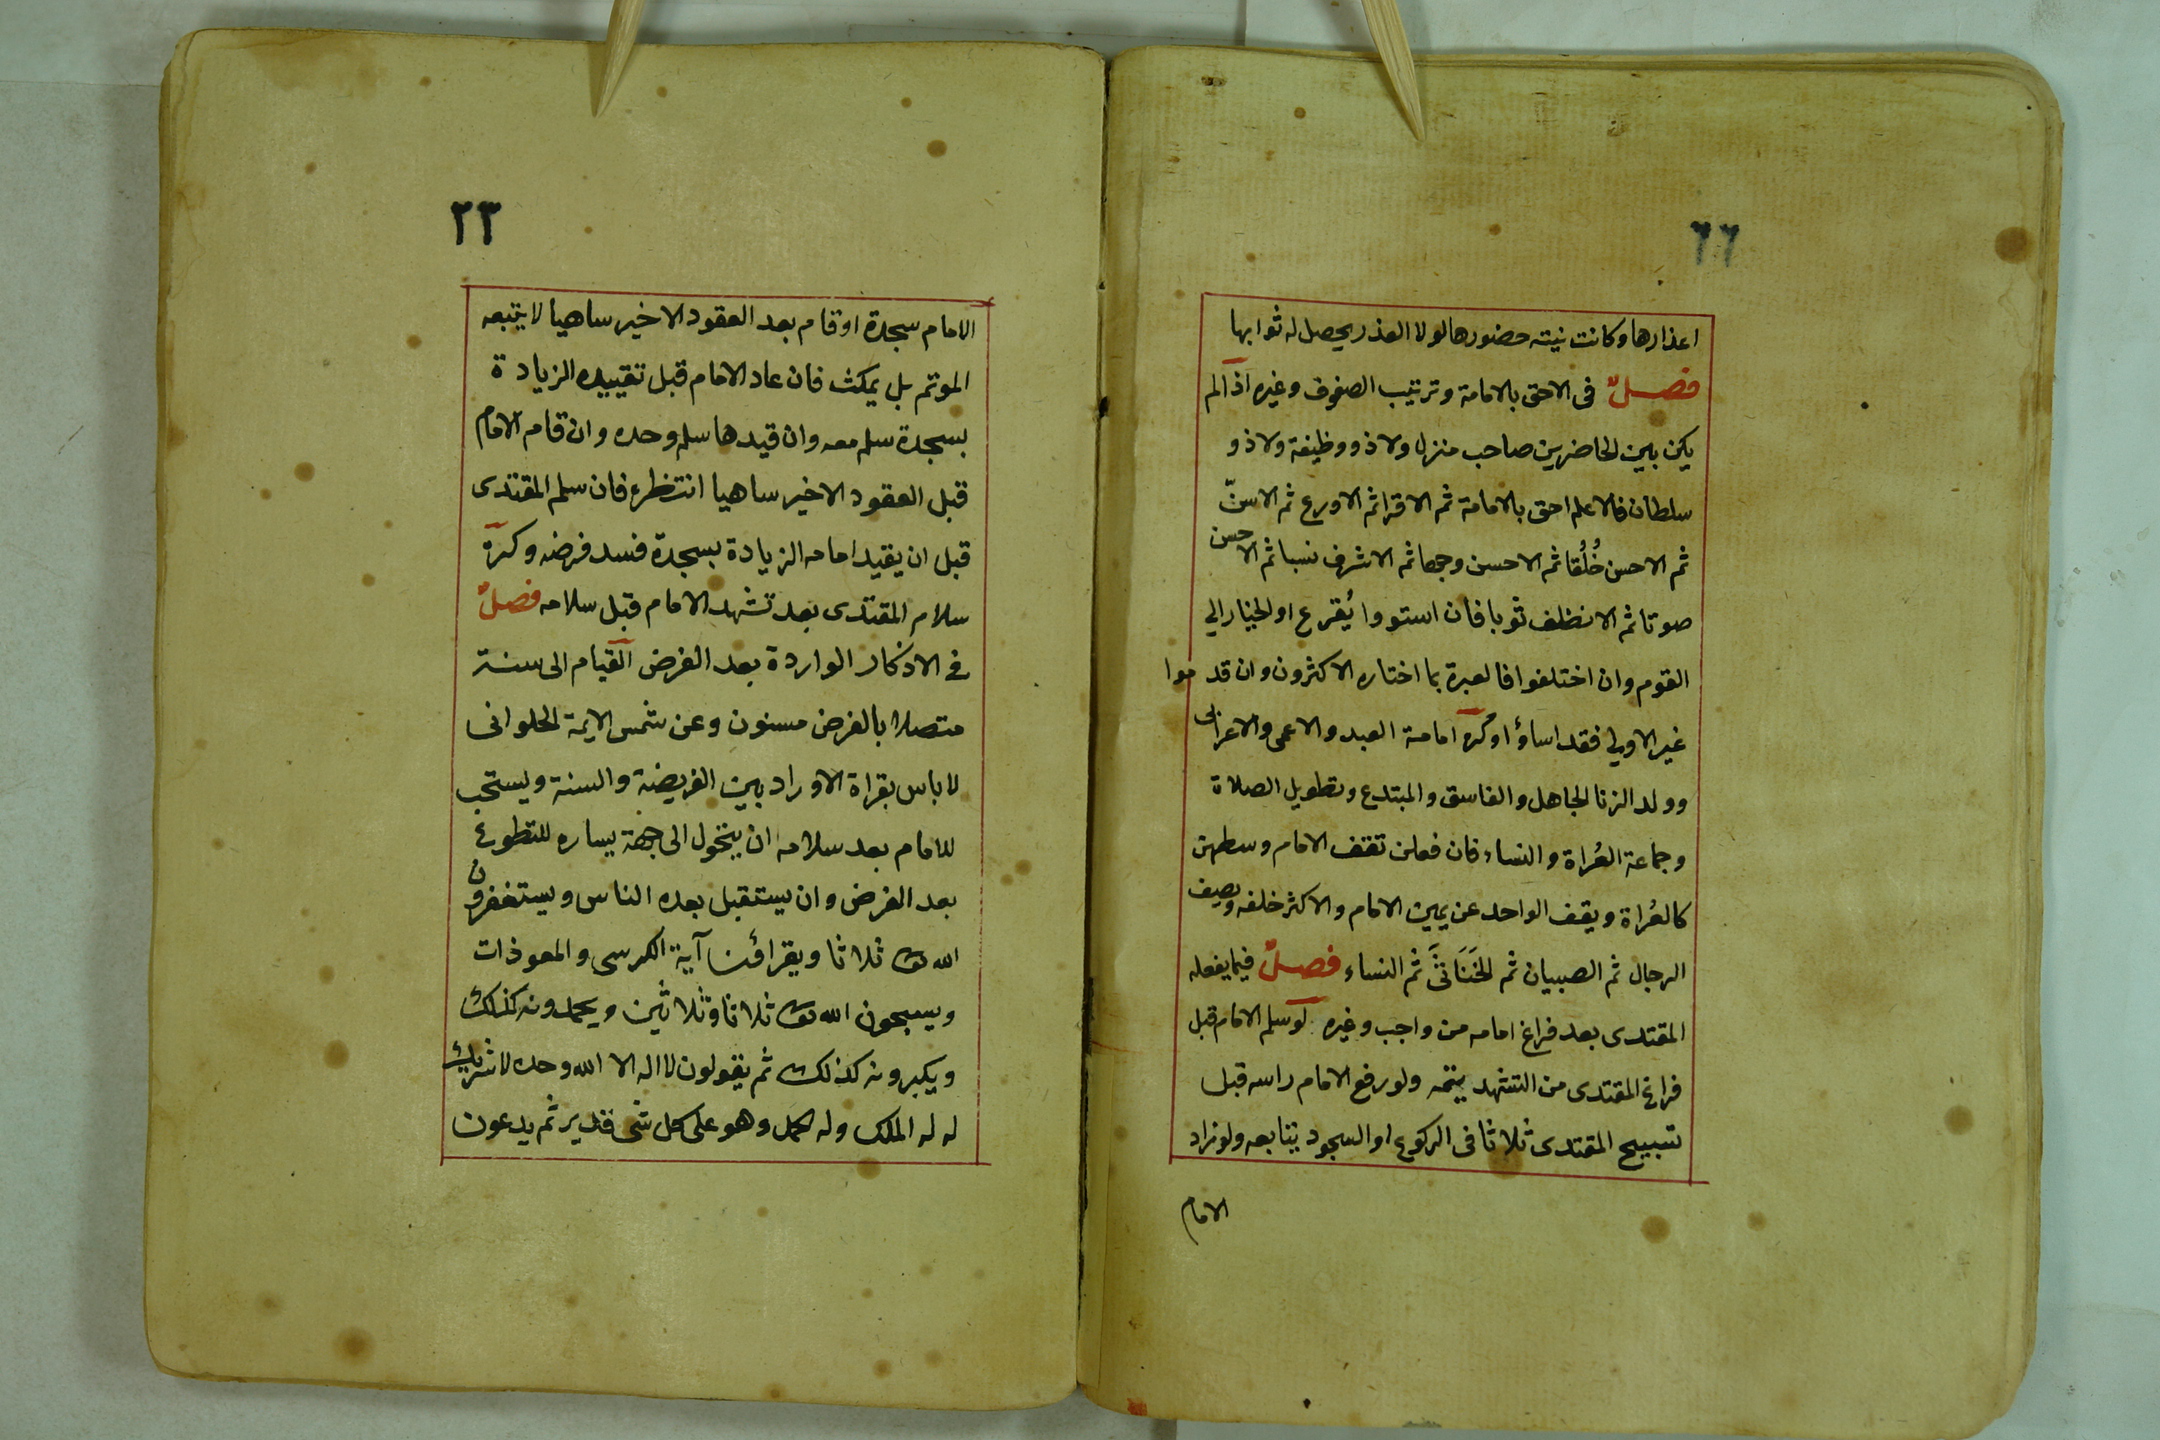 ٦٦
اعذارها وكانت نيته حضورها لولا العذر يحصل له ثوابها
فصلٌ فى الاحق بالامامة وترتيب الصفوف وغيره اذا لم
يكن بين الحاضرين صاحب منزل ولا ذو وظيفة ولا ذو
سلطان فالاعلم احق بالامامة ثم الاقرا ثم الاورع ثم الاسنّ
ثم الاحسن خُلُقا ثم الاحسن وجها ثم الاشرف نسبا ثم الاحسن
صوتا ثم الانظف ثوبا فان استووا يُقرع او الخيار الي
القوم وان اختلفوا فالعبرة بما اختاره الاكثرون وان قدموا
غير الاولي فقد اساؤا وكُره امامة العبد والاعمى والاعرابى
وولد الزنا الجاهل والفاسق والمبتدع وتطويل الصلاة
وجماعة العُراة والنساء فان فعلن تقف الامام وسطهن
كالعُراة ويقف الواحد عن يمين الامام والاكثر خلفه ويصف
الرجال ثم الصبيان ثم الخَنَاثَى ثم النساء فصلٌ فيما يفعله
المقتدى بعد فراغ امامه من واجب وغيره لو سلم الامام قبل
فراغ المقتدى من التشهد يتمه ولو رفع الامام راسه قبل
تسبيح المقتدى ثلاثا فى الركوع او السجود يتابعه ولو زاد
الامام
٢٣
الامام سجدة او قام بعد العقود الاخير ساهيا لا يتبعه
الموتم بل يمكث فان عاد الامام قبل تقييده الزيادة
بسجدة سلم معه وان قيدها سلم وحده وان قام الامام
قبل العقود الاخير ساهيا انتظره فان سلم المقتدى
قبل ان يقيد امامه الزيادة بسجدة فسد فرضه وكره
سلام المقتدى بعد تشهد الامام قبل سلامه فصلٌ
فى الاذكار الواردة بعد الفرض القيام الى سنة
متصلا بالفرض مسنون وعن شمس الايمة الحلوانى
لا باس بقراة الاوراد بين الفريضة والسنة ويستحب
للامام بعد سلامه ان يتحول الى جهة يساره للتطوع
بعد الفرض وان يستقبل بعده الناس ويستغفرون
الله تعالى ثلاثا ويقراؤن آية الكرسى والمعوذات
ويسبحون الله تعالى ثلاثا وثلاثين ويحمدونه كذلك
ويكبرونه كذلك ثم يقولون لا اله الا الله وحده لا شريك
له له الملك وله الحمد وهو على كل شى قدير ثم يدعون